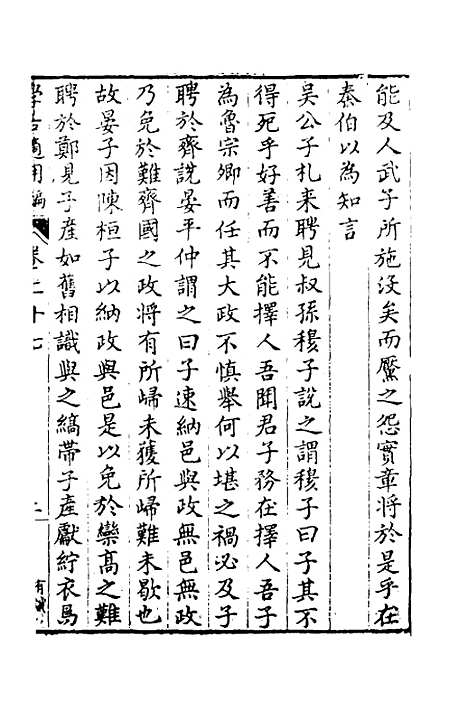 能及人武子所施沒矣而黶之怨實章將於是乎在
秦伯以為知言
吳公子札来聘見叔孫穆子說之謂穆子曰子其不
得死乎好善而不能擇人吾聞君子務在擇人吾子
為魯宗卿而任其大政不慎舉何以堪之禍必及子
聘於齊說晏平仲謂之曰子速納邑與政無邑無政
乃免於難齊國之政將有所歸未獲所歸難未歇也
故晏子因陳桓子以納政與邑是以免於欒高之難
聘於鄭見子產如舊相識與之縞帶子產獻紵衣焉
學古適用編 卷二十七 二